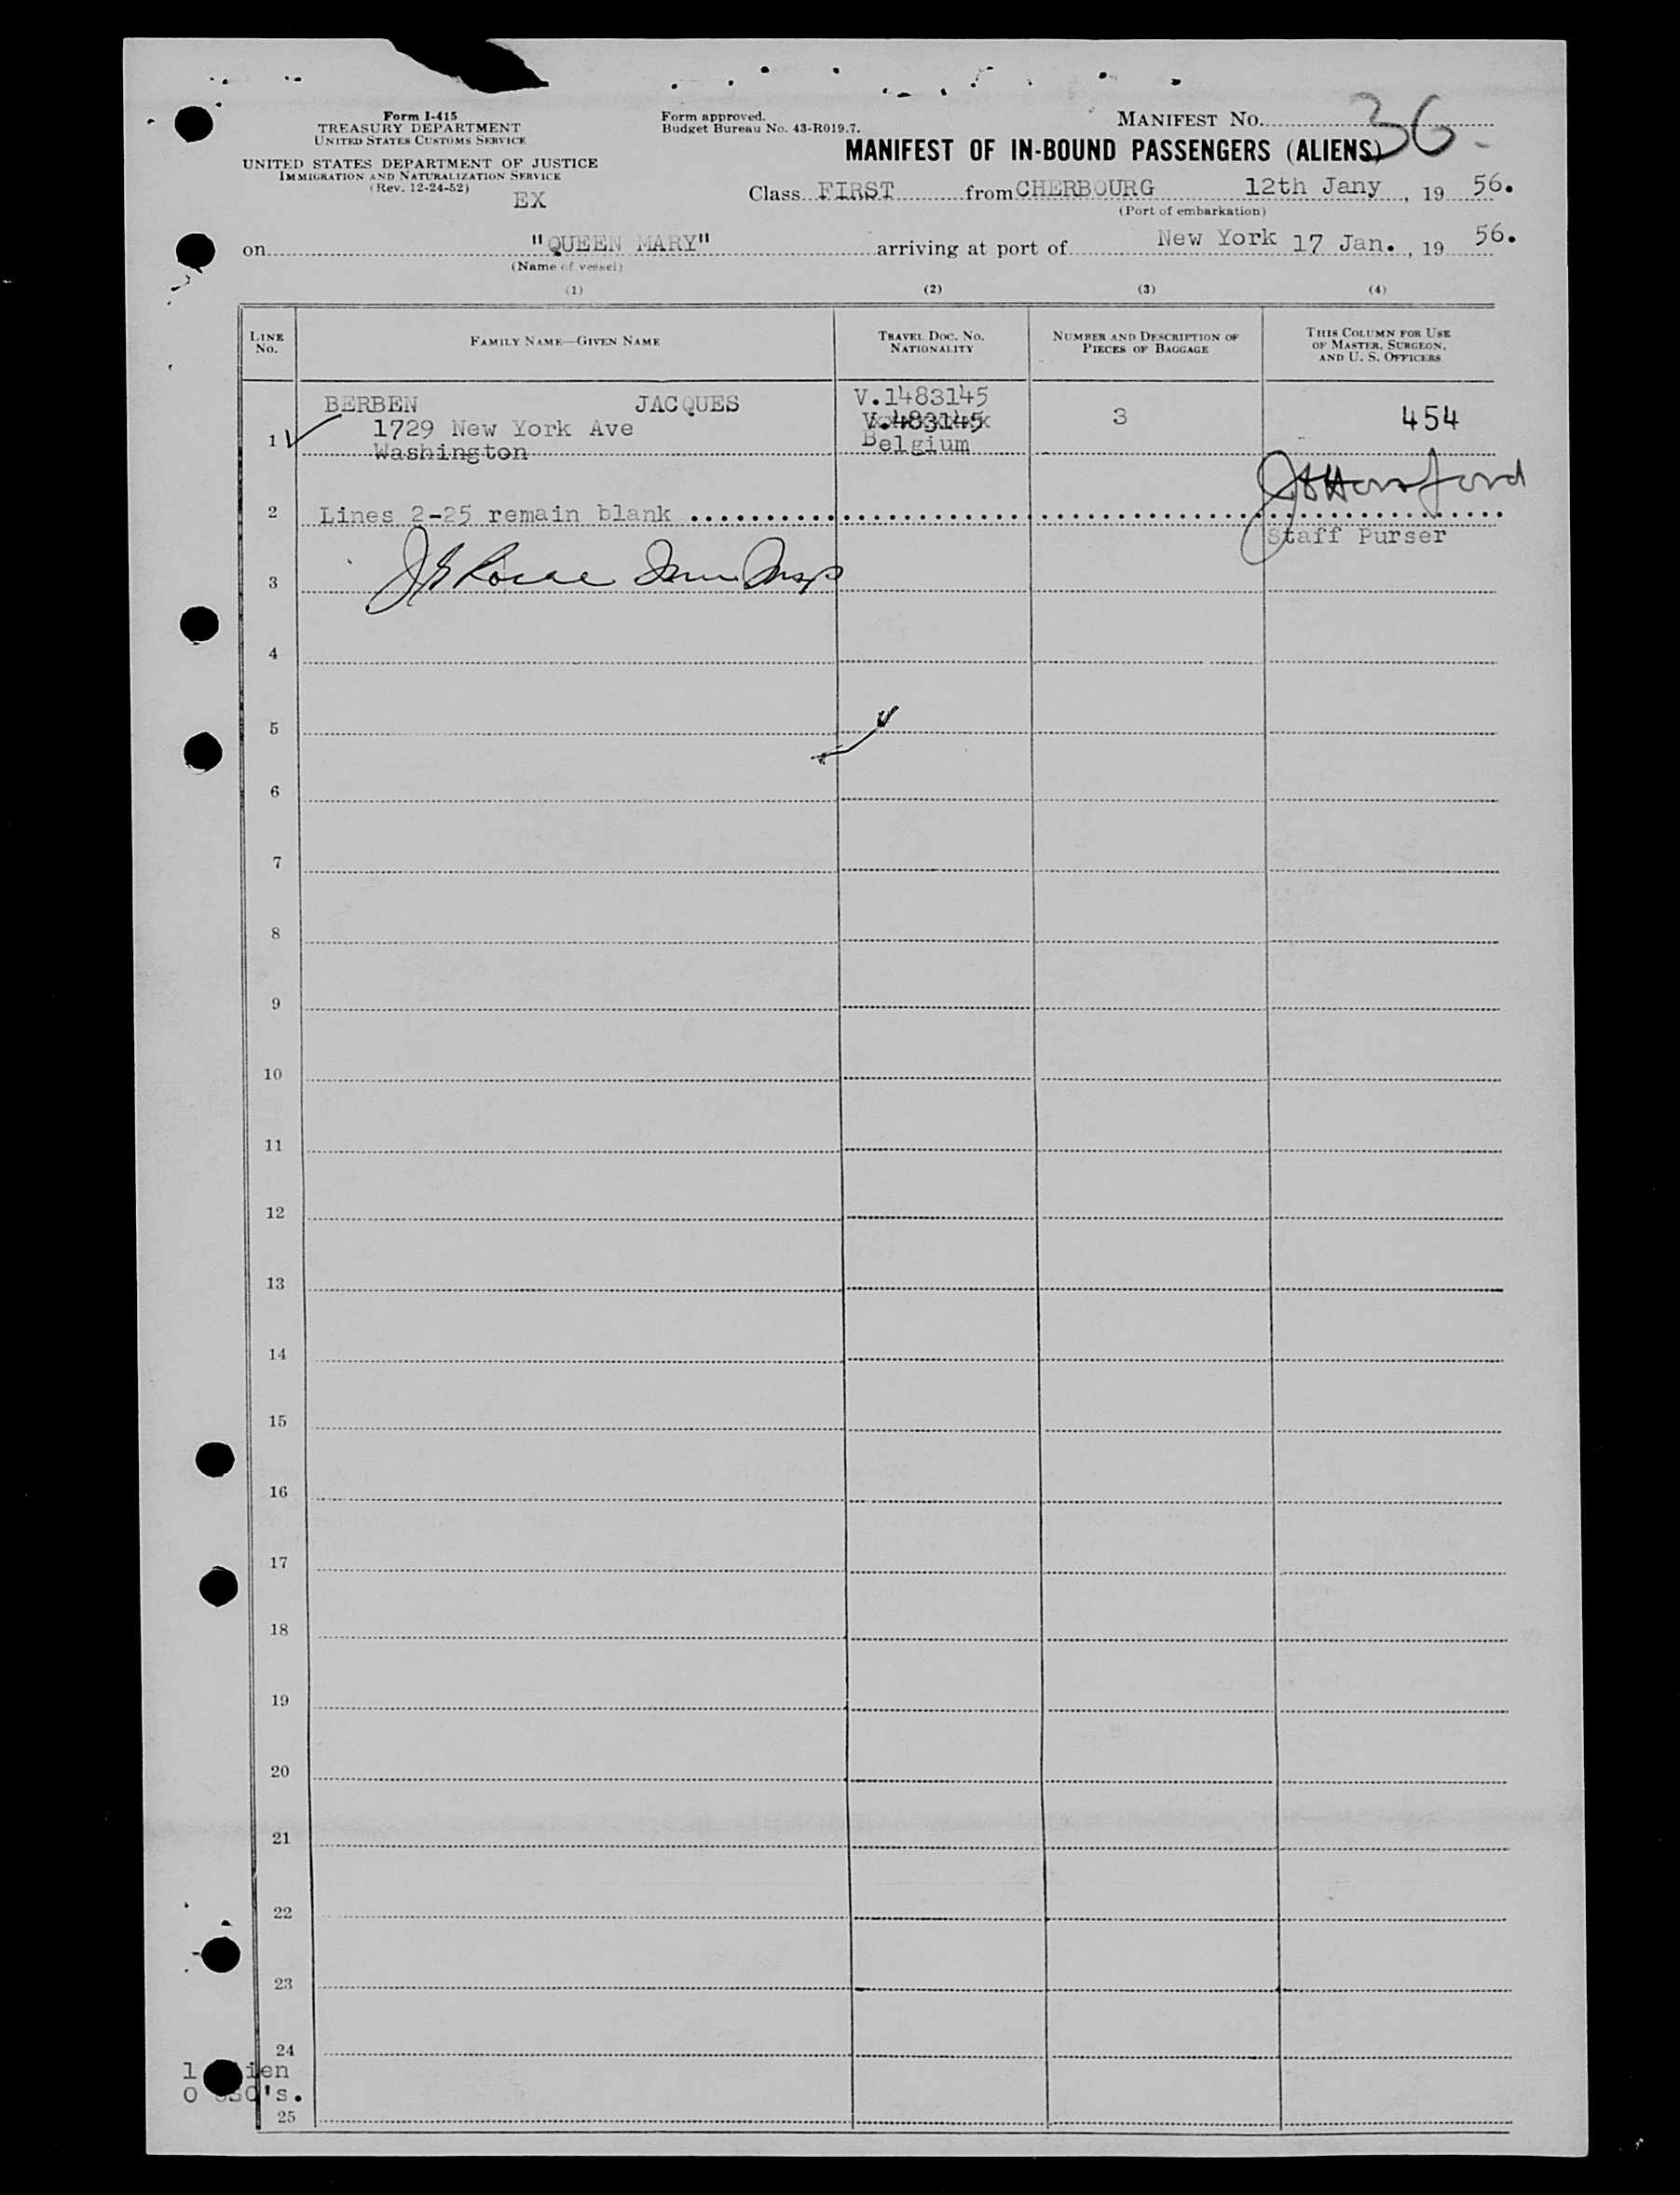 Form I-415
TREASURY DEPARTMENT
UNITED STATES CUSTOMS SERVICE
UNITED STATES DEPARTMENT OF JUSTICE
IMMIGRATION AND NATURALIZATION SERVICE
(Rev. 12-24-52)
EX
Form approved.
Budget Bureau No. 43-R019.7.
MANIFEST No. 36
MANIFEST OF IN-BOUND PASSENGERS (ALIENS)
Class FIRST from CHERBOURG 12th Jany, 19 56.
(Port of embarkation)
on "QUEEN MARY" arriving at port of New York 17 Jan., 19 56.
(Name of vessel)
(1) (2) (3) (4)
LINE No. FAMILY NAME—GIVEN NAME TRAVEL DOC. No. NATIONALITY NUMBER AND DESCRIPTION OF PIECES OF BAGGAGE THIS COLUMN FOR USE OF MASTER, SURGEON, AND U. S. OFFICERS
BERBEN JACQUES V.1483145
1729 New York Ave V.483145 3 454
1 Washington Belgium
2 Lines 2-25 remain blank
Staff Purser
3
4
5
6
7
8
9
10
11
12
13
14
15
16
17
18
19
20
21
22
23
24
1 ien
0 's.
25